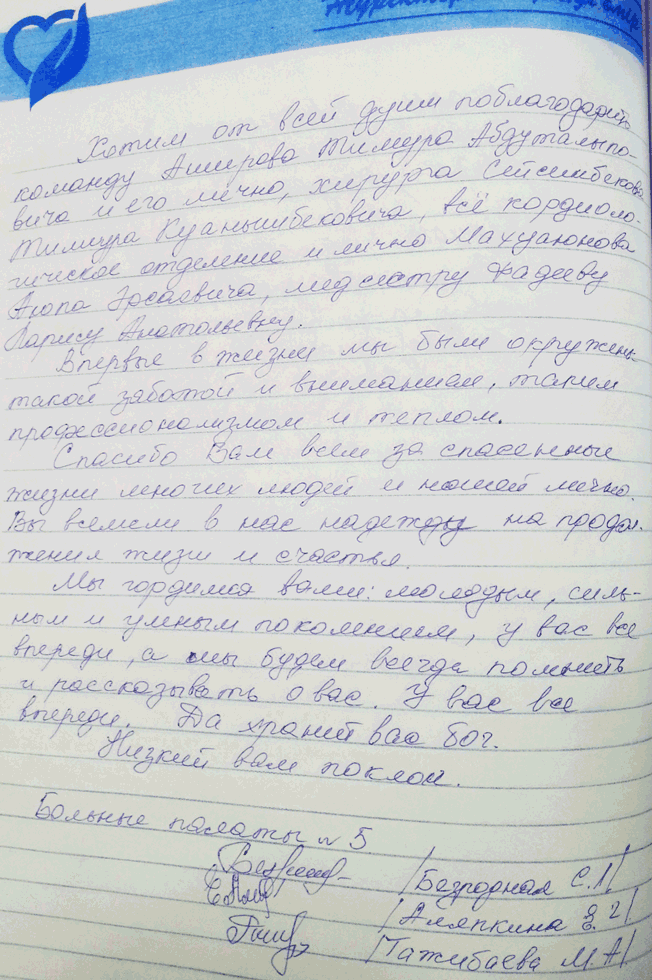 Хотим от всей души поблагодарить
команду Аширова Тимура Абдуталыпо-
вича и его лично, хирурга Сейсембекова
Тимура Куанышбековича, всё кордиоло-
гическое отделение и лично Махуаюнова
Аюпа Эрсаевича, медсестру Фадееву
Ларису Анатольевну.
Впервые в жизни мы были окружены
такой заботой и вниманием, таким
профессионализмом и теплом.
Спасибо Вам всем за спасенные
жизни многих людей и нашей лично.
Вы вселили в нас надежду на продол-
жения жизни и счастья.
Мы гордимся вами: молодым, силь-
ным и умным поколением, у вас все
впереди, а мы будем всегда помнить
и рассказывать о вас. У вас все
впереди. Да храний вас бог.
Низкий вам поклон.
Больные палаты № 5
/Безродная С. /
/Аляпкина Е. /
/Тажибаева М. А/